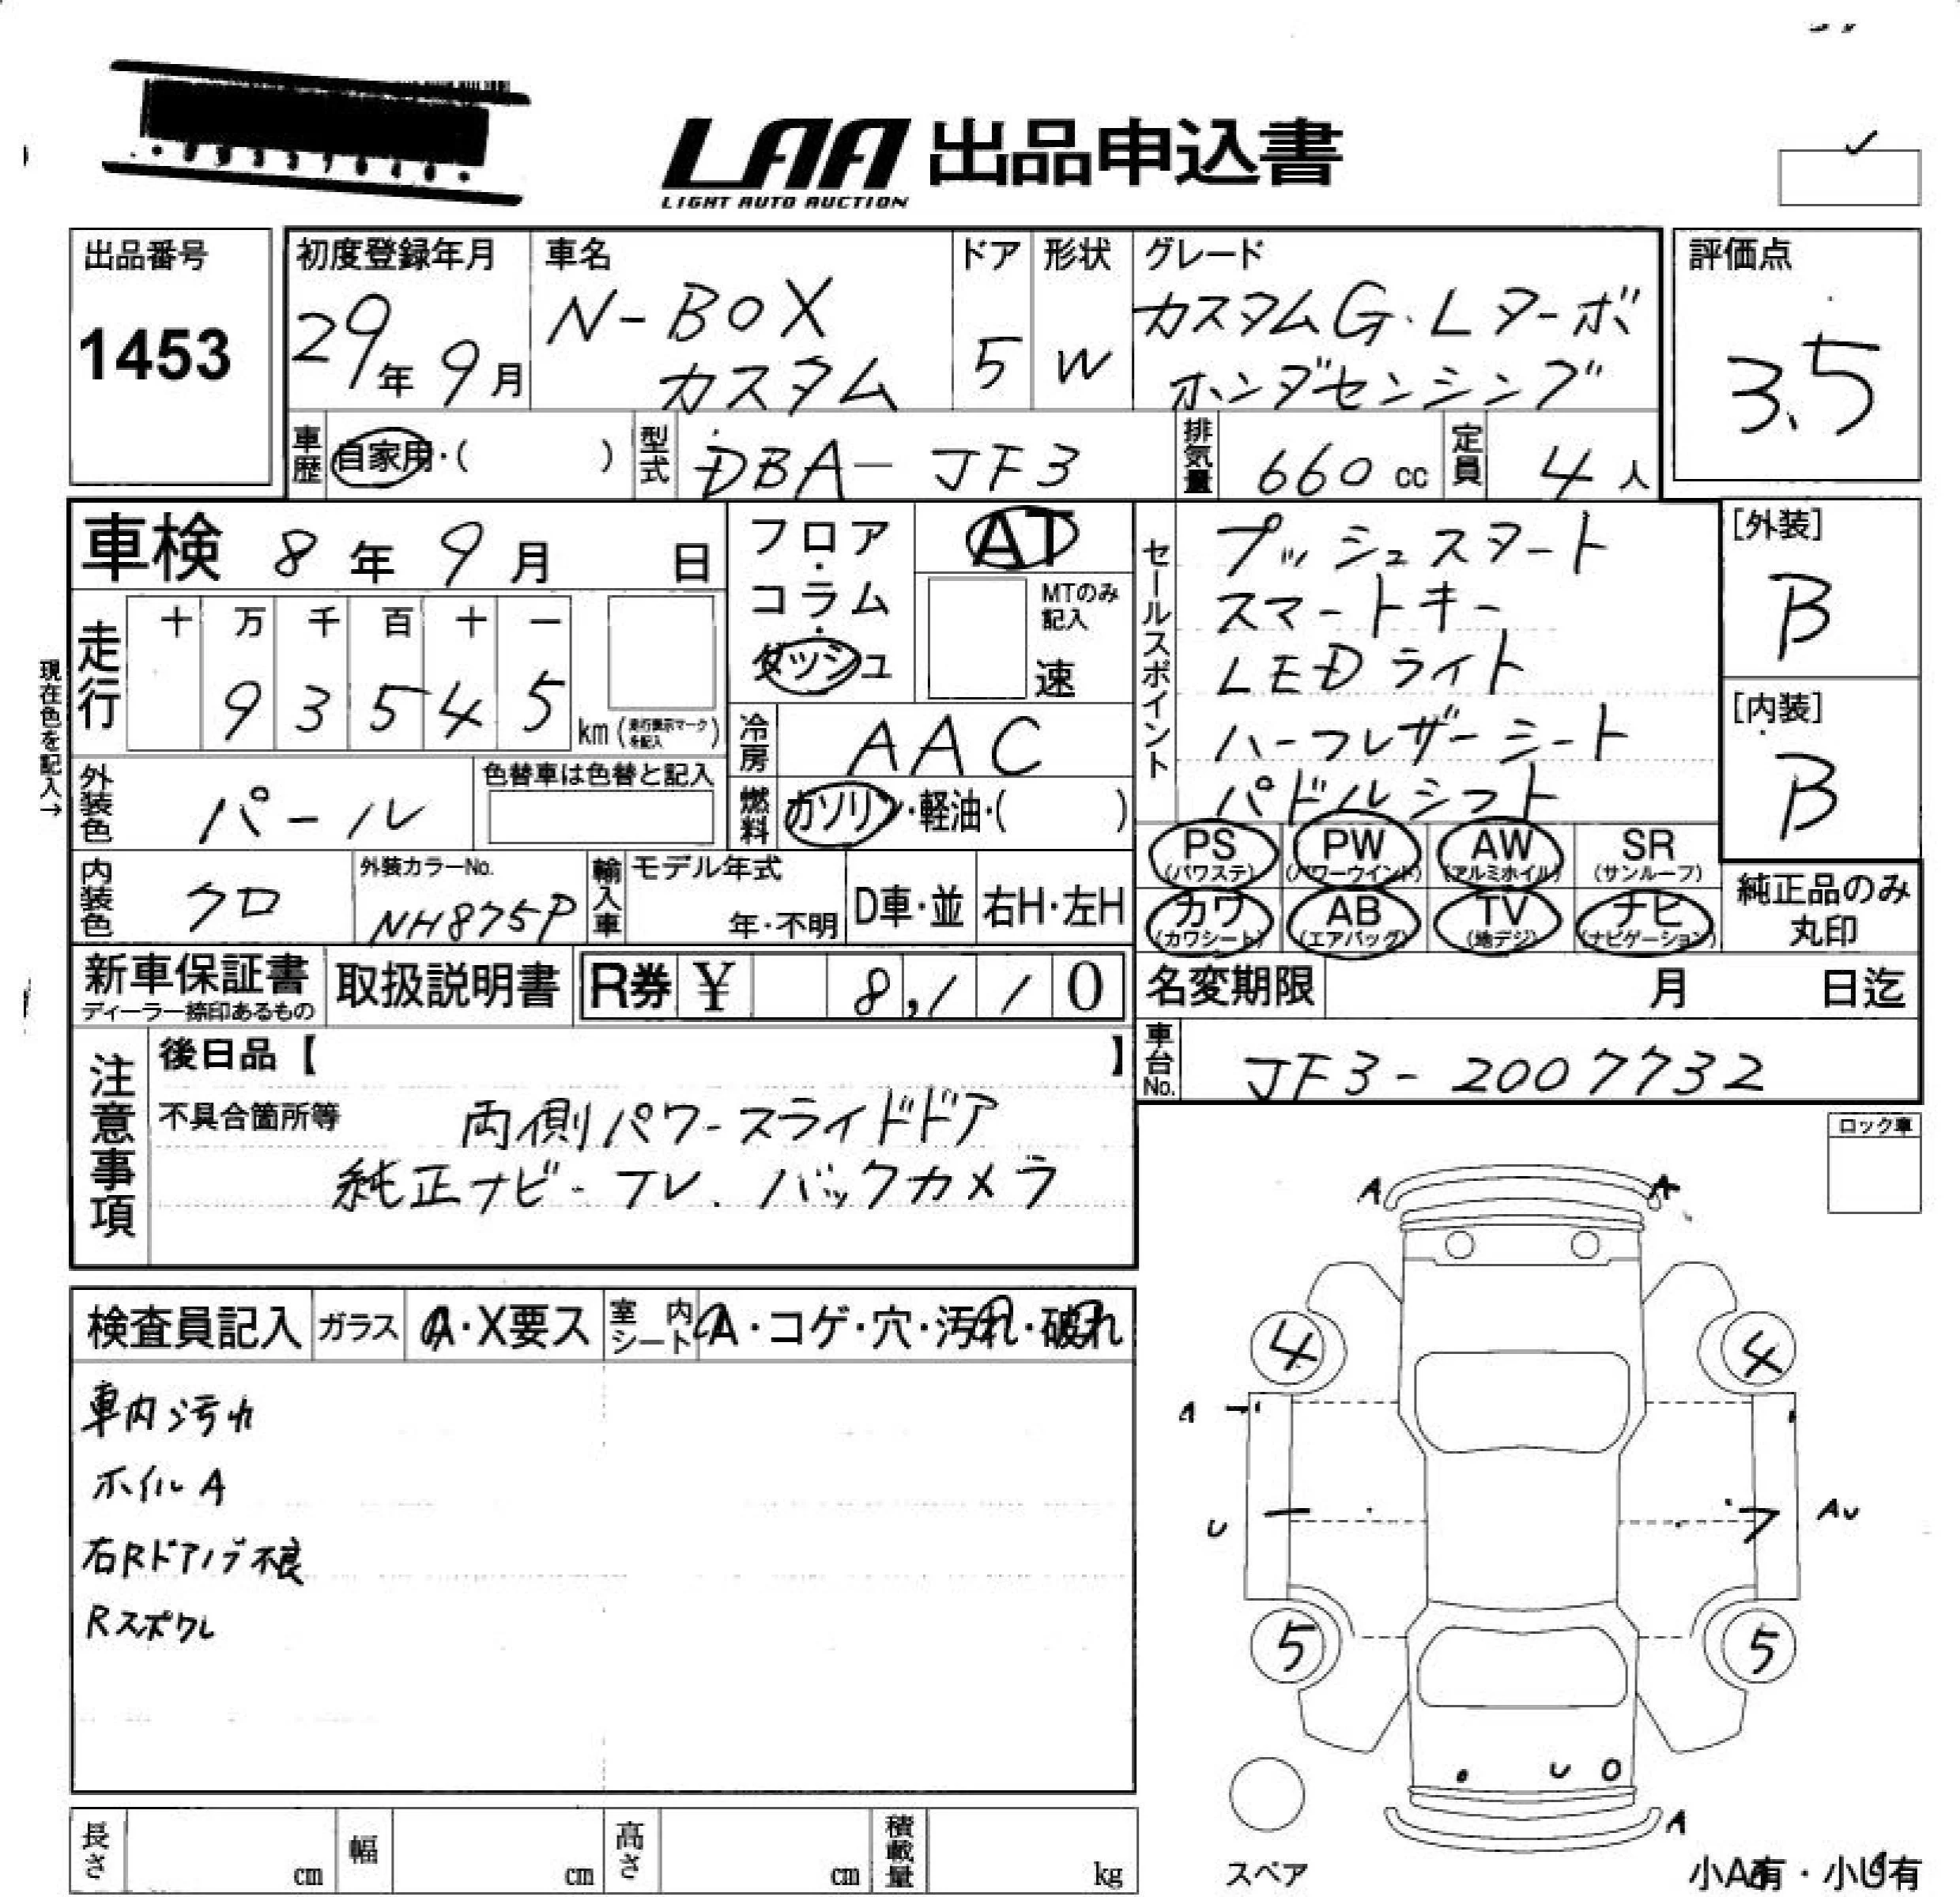 LAA 出品申込書
LIGHT AUTO AUCTION
出品番号
1453
初度登録年月
29年 9月
車名
N-BOX
カスタム
ドア
5
形状
W
グレード
カスタムG・Lターボ
ホンダセンシング
評価点
3.5
車歴
自家用・( )
型式
DBA-JF3
排気量
660 cc
定員
4 人
車検 8年 9月 日
フロア・コラム・ダッシュ
AT
MTのみ記入
速
走行
十 万 千 百 十 一
9 3 5 4 5
km (走行表示マークを記入)
現在色を記入→
冷房
AAC
外装色
パール
色替車は色替と記入
燃料
ガソリン・軽油・( )
内装色
クロ
外装カラーNo.
NH875P
輸入車
モデル年式
年・不明
D車・並
右H・左H
セールスポイント
プッシュスタート
スマートキー
LEDライト
ハーフレザーシート
パドルシフト
[外装]
B
[内装]
B
PS (パワステ)
PW (パワーウインド)
AW (アルミホイル)
SR (サンルーフ)
カワ (カワシート)
AB (エアバッグ)
TV (地デジ)
ナビ (ナビゲーション)
純正品のみ
丸印
新車保証書
ディーラー捺印あるもの
取扱説明書
R券 ¥ 8,110
名変期限 月 日迄
車台No.
JF3-2007732
注意事項
後日品【 】
不具合箇所等
両側パワースライドドア
純正ナビ・TV.バックカメラ
ロック車
検査員記入
ガラス
A・X要ス
室内シート
A・コゲ・穴・汚れ・破れ
車内汚れ
ホイルA
右Rドアノブ不良
Rスポワレ
A A
4 4
A
U AU
5 5
U
A
スペア
小A有・小U有
長さ cm
幅 cm
高さ cm
積載量 kg